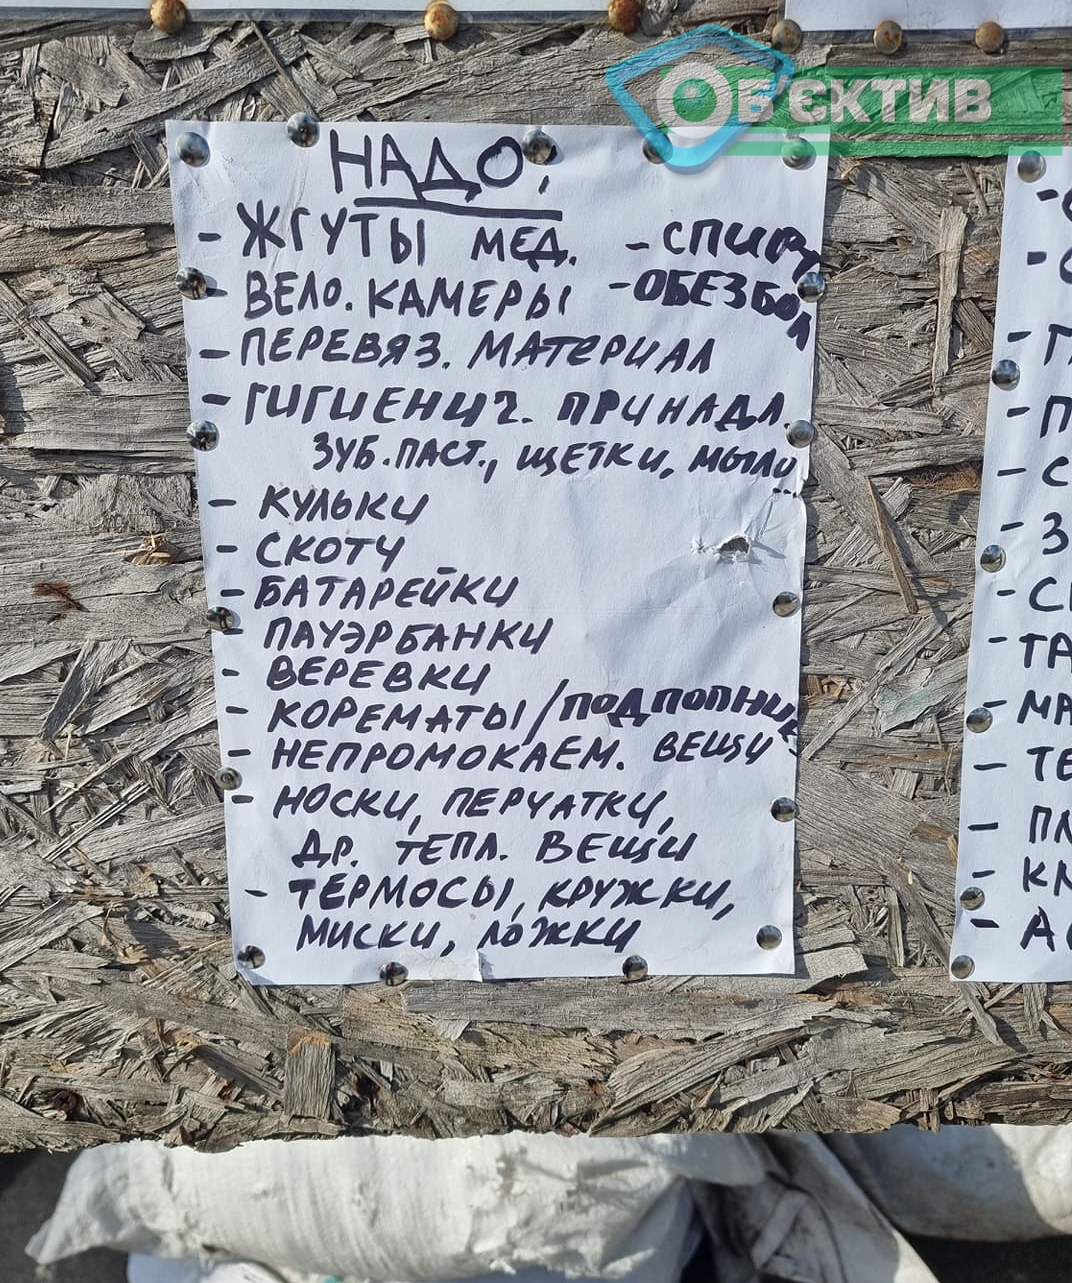 ОБ'ЄКТИВ
НАДО:
- ЖГУТЫ МЕД. - СПИРТ
ВЕЛО. КАМЕРЫ - ОБЕЗБОЛ
- ПЕРЕВЯЗ. МАТЕРИАЛ
- ГИГИЕНИЧ. ПРИНАДЛ.
ЗУБ.ПАСТ., ЩЕТКИ, МЫЛО...
- КУЛЬКИ
- СКОТЧ
- БАТАРЕЙКИ
- ПАУЭРБАНКИ
- ВЕРЕВКИ
- КОРЕМАТЫ/ПОДПОПНИК
- НЕПРОМОКАЕМ. ВЕЩИ
- НОСКИ, ПЕРЧАТКИ,
ДР. ТЕПЛ. ВЕЩИ
- ТЕРМОСЫ, КРУЖКИ,
МИСКИ, ЛОЖКИ